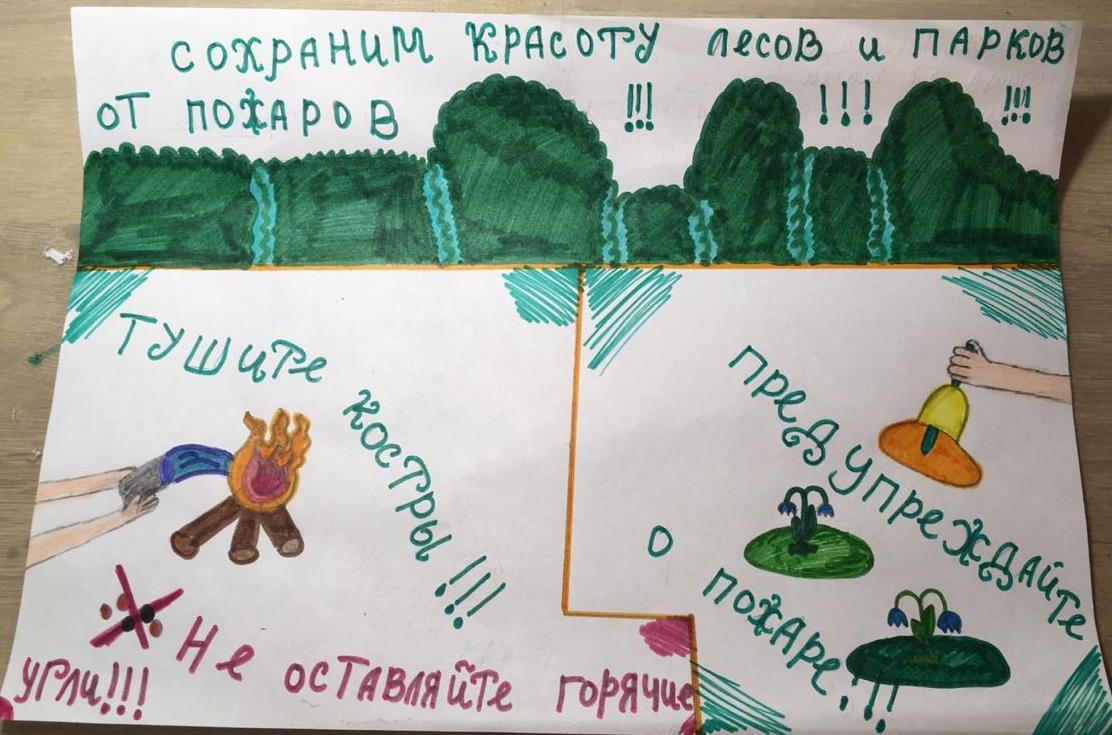 СОХРАНИМ КРАСОТУ ЛЕСОВ И ПАРКОВ
ОТ ПОЖАРОВ !!! !!! !!!
ТУШИТЕ
КОСТРЫ!!!
Не ОСТАВЛЯЙТЕ ГОРЯЧИЕ
УГЛИ!!!
ПРЕДУПРЕЖДАЙТЕ
О
ПОЖАРЕ!!!